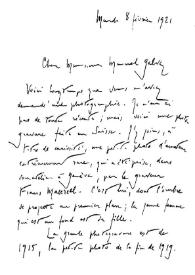 Mardi 8 février 1921
Cher Monsieur Manuel Galvez
Voici longtemps que vous m'avez
demandé une photographie. Je n'en ai
pas de toute récente; mais voici une
gravure faite en Suisse. J'y joins, à
titre de curiosité, une petite photo d'amateur
extrêmement rare, qui a été prise, dans
à Genève, par le graveur
Frans Masereel. C'est lui dont l'ombre
se projette au premier plan; la jeune femme
qui est au fond est sa fille.
La grande photogravure est de
1915, la petite photo de la fin de 1919.